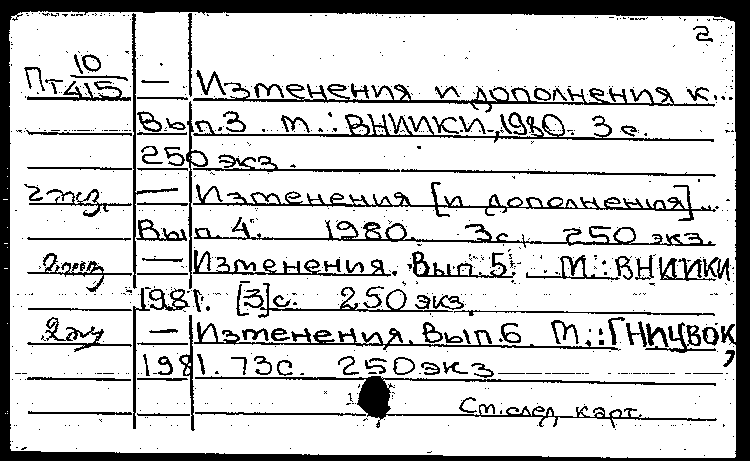 2
Пт 10/415 — Изменения и дополнения к...
Вып.3. М.: ВНИИКИ, 1980. 3 с.
250 экз.
2 экз. — Изменения [и дополнения]...
Вып. 4. 1980. 3 с. 250 экз.
2 экз — Изменения. Вып. 5. М.: ВНИИКИ
1981. [3] с. 250 экз.
2 экз — Изменения. Вып. 6. М.: ГНИЦВОК,
1981. 73 с. 250 экз
См. след. карт.